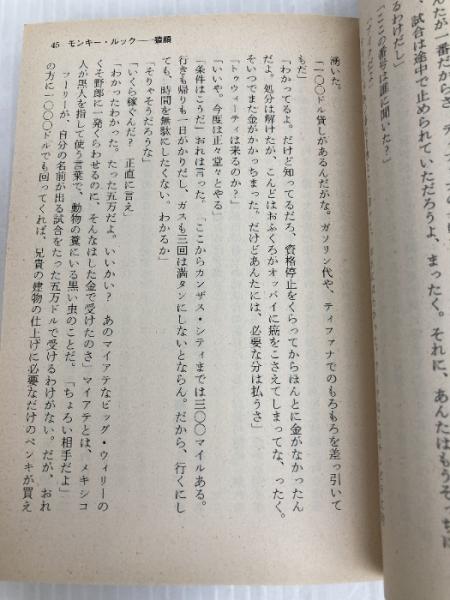 んたが一番だからさ
、試合は途中で止められていただろうよ、まったく。それに、あんたはもうそっちに
るわけだし」
「ここの番号は誰に聞いた?」
45 モンキー・ルック——猿顔
湧いた。
「一〇〇ドル貸しがあるんだがな。ガソリン代や、ティファナでのもろもろを差っ引いて
もだ」
「わかってるよ。だけど知ってるだろ、資格停止をくらってからほんとに金がなかったん
だよ。処分は解けたが、こんどはおふくろがオッパイに癌をこさえてしまってな、ったく。
そいつでまた金がかかっちまった。だけどあんたには、必要な分は払うさ」
「トゥウィーティは来るのか?」
「いいや。今度は正々堂々とやる」
「条件はこうだ」おれは言った。「ここからカンザス・シティまでは三〇〇マイルある。
行きも帰りも一日がかりだし、ガスも三回は満タンにしないとならん。だから、行くにし
ても、時間を無駄にしたくない。わかるか」
「そりゃそうだろうな」
「いくら稼ぐんだ? 正直に言え」
「わかったわかった。たった五万だよ。いいかい? あのマイアテなビッグ・ウィリーの
くそ野郎に一発くらわせるのに、そんなはした金で受けたのさ」マイアテとは、メキシコ
人が黒人を指して使う言葉で、動物の糞にいる黒い虫のことだ。「ちょろい相手だよ」
フーリーが、自分の名前が出る試合をたった五万ドルで受けるわけがない。だが、おれ
の方に一〇〇〇ドルでも回ってくれば、兄貴の建物の仕上げに必要なだけのペンキが買え